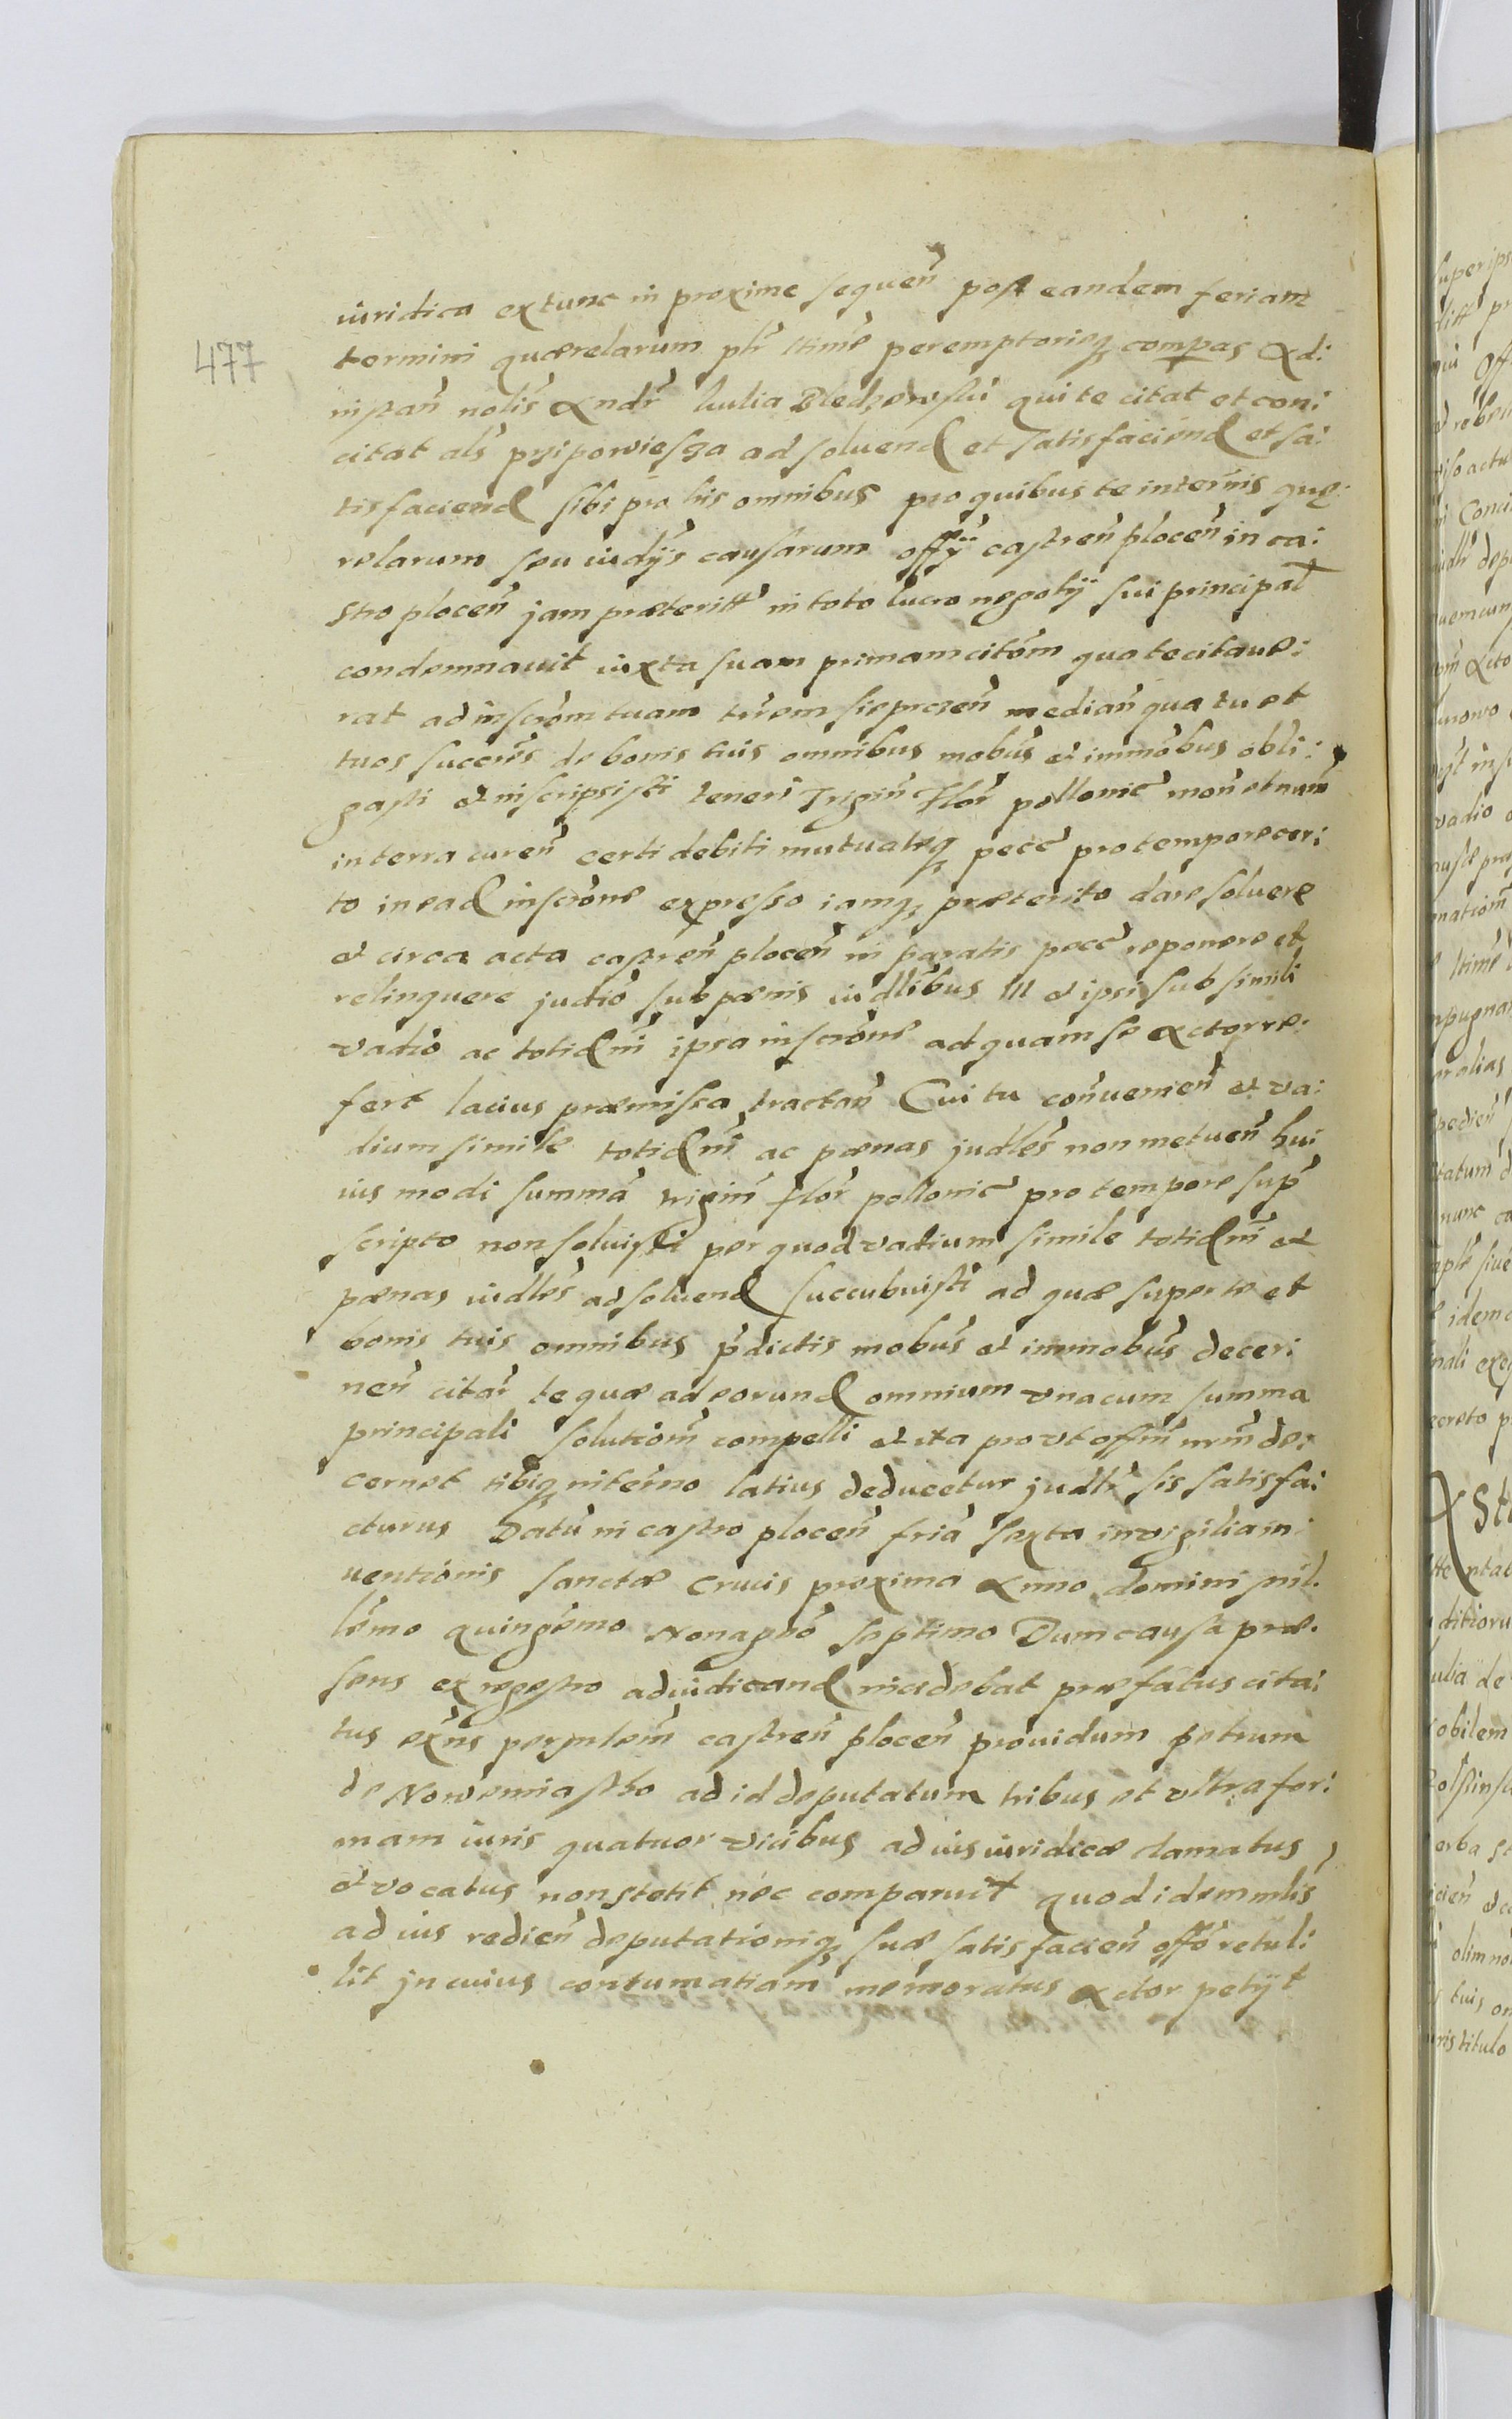 iuridica extunc in proxime sequen̄ post eandem feriam
477
termini quærelarum płr ltime peremptorieq₃ compas Ad:
instan̄ nołis Andr̄ kulia Bledzewski qui te citat et con:
citat als przipowiesga ad soluend et satisfaciend et sa:
tisfaciend sibi pro his omnibus pro quibus te in ter̄nis quę:
relarum seu iudȳs causarum offȳ castren̄ plocen̄ in ca:
stro plocen̄ jam præteritt̄ in toto lucro negotÿ sui principal
condemnauit iuxta suam primam citōm qua te citaue:
rat ad inscrōm tuam trēm sieprczen̄ median̄ qua tu et
tuos succrēs de bonis tuis omnibus mobūs et immobus obli:
gasti et inscripsisti teneri Trigin̄ Flor̄ pollonic̄ mon et num̄
in terra curen̄ certi debiti mutuateq₃ pecc̄ pro tempore cer:
to in ead inscrōne expresso iamq₃ præterito dare soluere
et circa acta castren̄ plocen̄ in paratis pecc̄ reponere et
relinquere judiō sub pænis iudlibus III et ipsi sub simili
vadiō ac totidm̄ ipsa inscrōne ad quam se Actor re:
fert lacius præmissa tractan̄ Cui tu conuenien̄ et va:
dium simile totidm̄ ac pænas judłes non metuen̄ hui
ius modi summā trigin̄ flor̄ pollonic̄ pro tempore sup̄
scripto non soluisti per quod vadium simile totidm̄ et
pænas iudłes ad soluend succubuisti ad quæ super te et
bonis tuis omnibus p̄dictis mobūs et immobūs decer:
nen̄ citar̄ te quæ ad eorund omnium vna cum summa
principali solutiōm compelli et ita pro vt offm̄ nrm̄ de:
cernet tibiq₃ in ter̄no latius deducetur judłr sis satisfa:
cturus Datū in castro plocen̄ friā sexta in vigiliam in:
uentionis sanctæ Crucis proxima Anno domini mil:
lēmo quingēmo Nonagnō septimo Dum causa præ:
sens ex regestro ad iudicand incidebat præfatus cita:
tus exns per mlem̄ castren̄ plocen̄ prouidum petrum
de Nowemiastho ad id deputatum tribus et vltra for:
mam iuris quatuor vicibus ad ius iuridicæ clamatus
et vocatus non stetit nec comparuit quod idem mlis
ad ius redien̄ deputationiq₃ suæ satisfacien̄ offō retul:
lit jn cuius contumatiam memoratus Actor petÿt